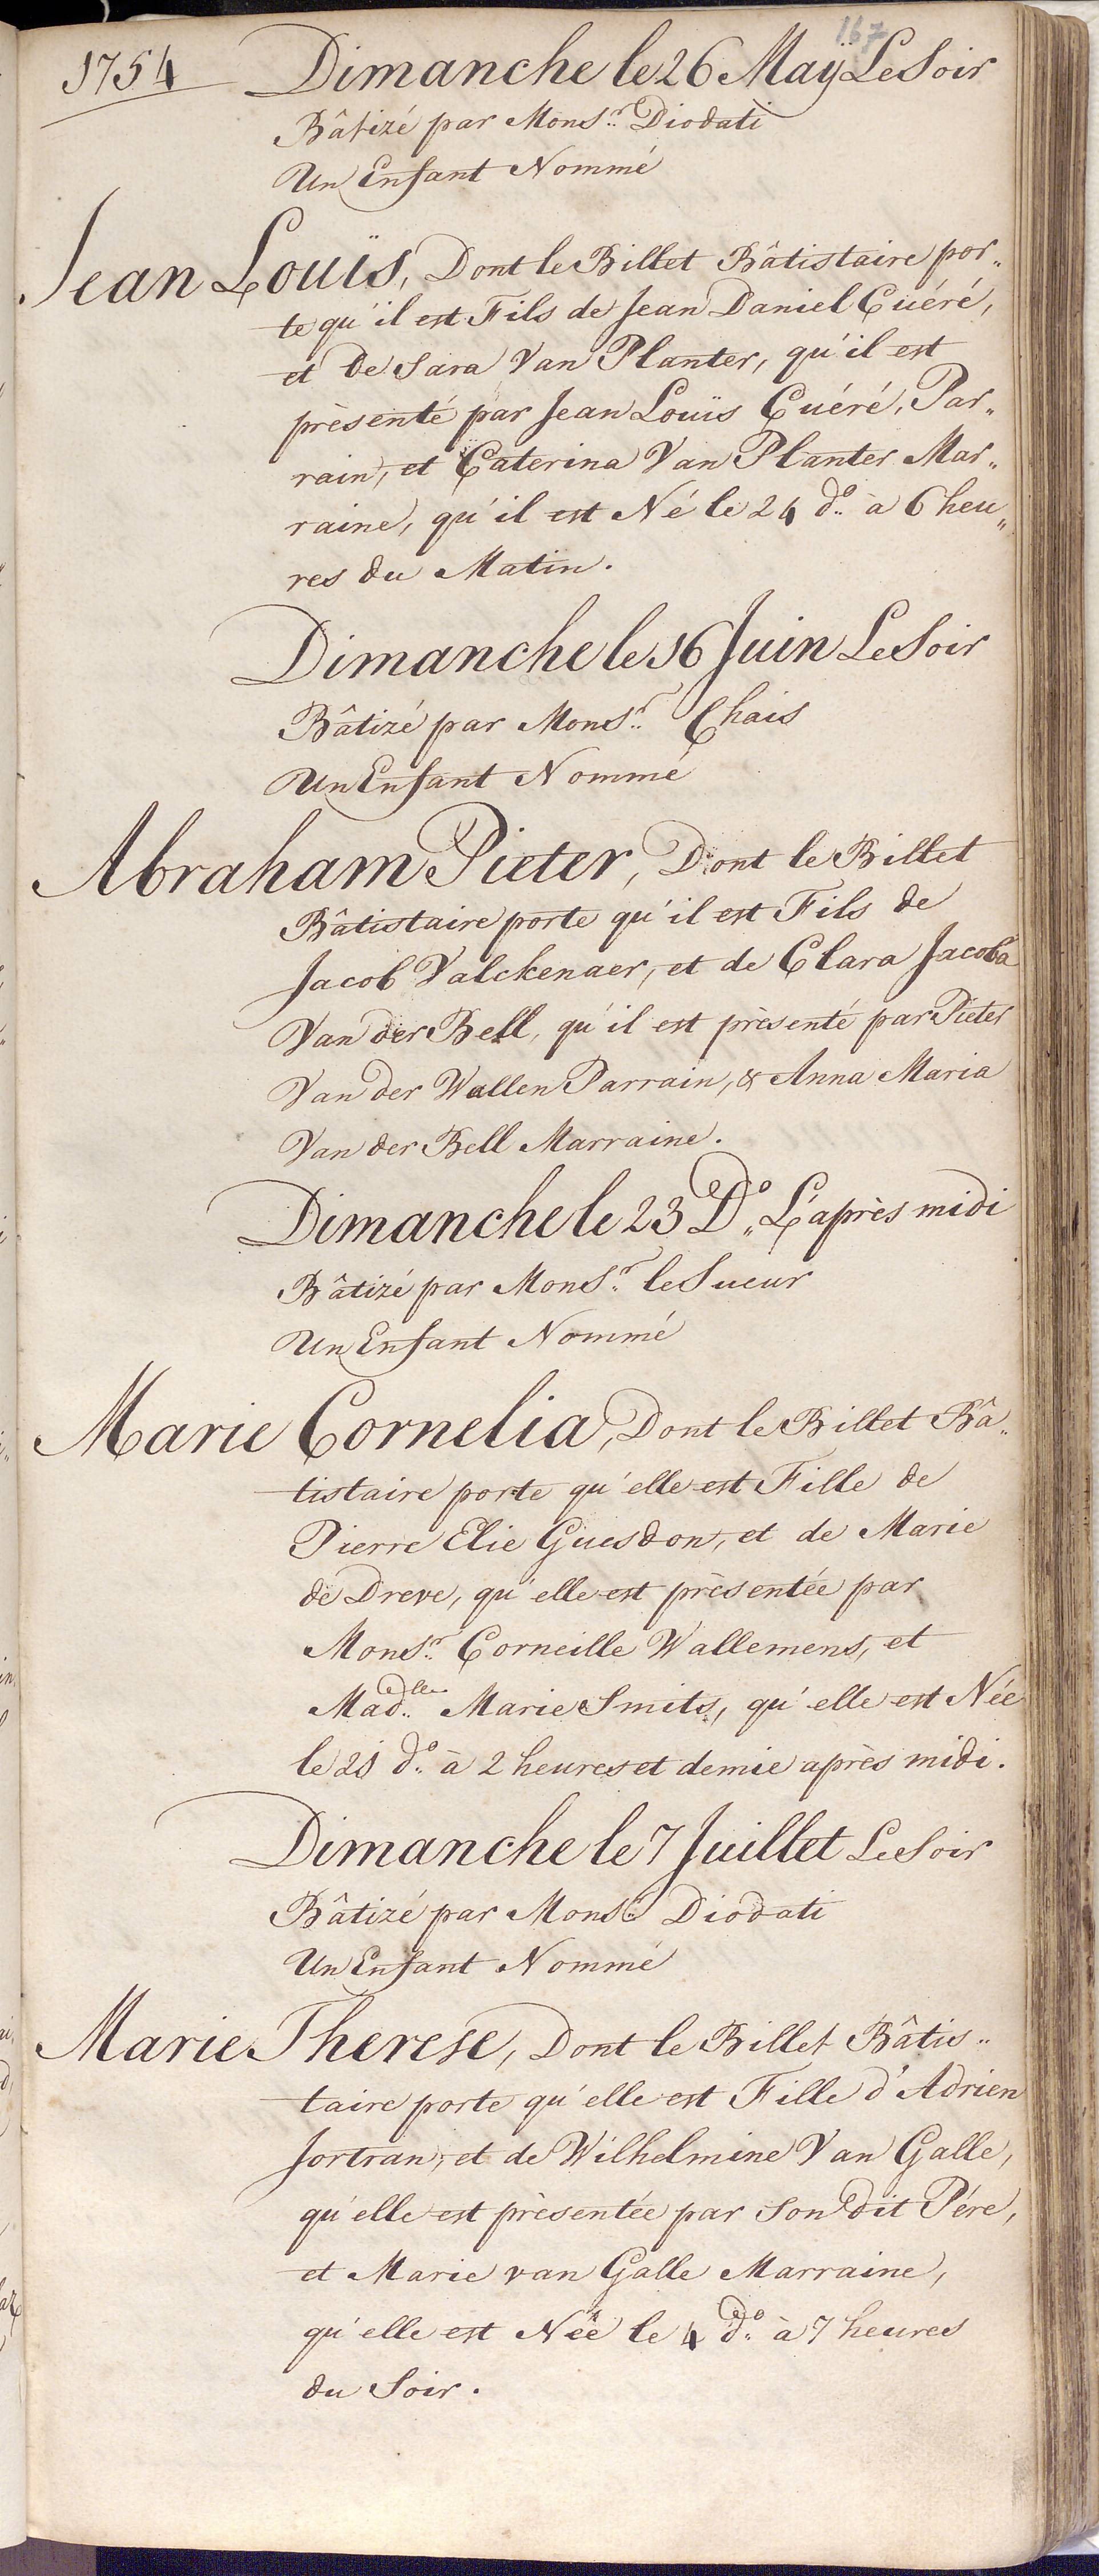 167
1754 Dimanche le 26 Maÿ Le Soir
Bâtizé par Mons.r Diodati
Un Enfant Nommé
Jean Louïs, Dont le Billet Bâtistaire por„
te qu'il est Fils de Jean Daniel Cuéré,
et De Sara Van Planter, qu'il est
présenté par Jean Louïs Cuéré, Par„
rain, et Caterina Van Planter Mar„
raine, qu'il est Né le 24 d.o à 6 heu„
res du Matin.
Dimanche le 16 Juin Le Soir
Bâtizé par Mons.r Chais
Un Enfant Nommé
Abraham Pieter, Dont le Billet
Bâtistaire porte qu'il est Fils de
Jacob Valckenaer, et de Clara Jacoba
Van der Bell, qu'il est présenté par Pieter
Van der Wallen Parrain, & Anna Maria
Van der Bell Marraine.
Dimanche le 23 D.o L'après midi
Bâtizé par Mons.r le Sueur
Un Enfant Nommé
Marie Cornelia, Dont le Billet Bâ„
tistaire porte qu'elle est Fille de
Pierre Elie Guesdon, et de Marie
de Dreve, qu'elle est présentée par
Mons.r Corneille Wallemens, et
Mad.lle Marie Smits, qu'elle est Née
le 21 d.o à 2 heures et demie après midi.
Dimanche le 7 Juillet Le Soir
Bâtizé par Mons.r Diodati
Un Enfant Nommé
Marie Therese, Dont le Billet Bâtis„
taire porte qu'elle est Fille d'Adrien
Jortran, et de Wilhelmine Van Galle,
qu'elle est présentée par Son dit Pére,
et Marie van Galle Marraine,
qu'elle est Née le 4 d.o à 7 heures
du Soir.